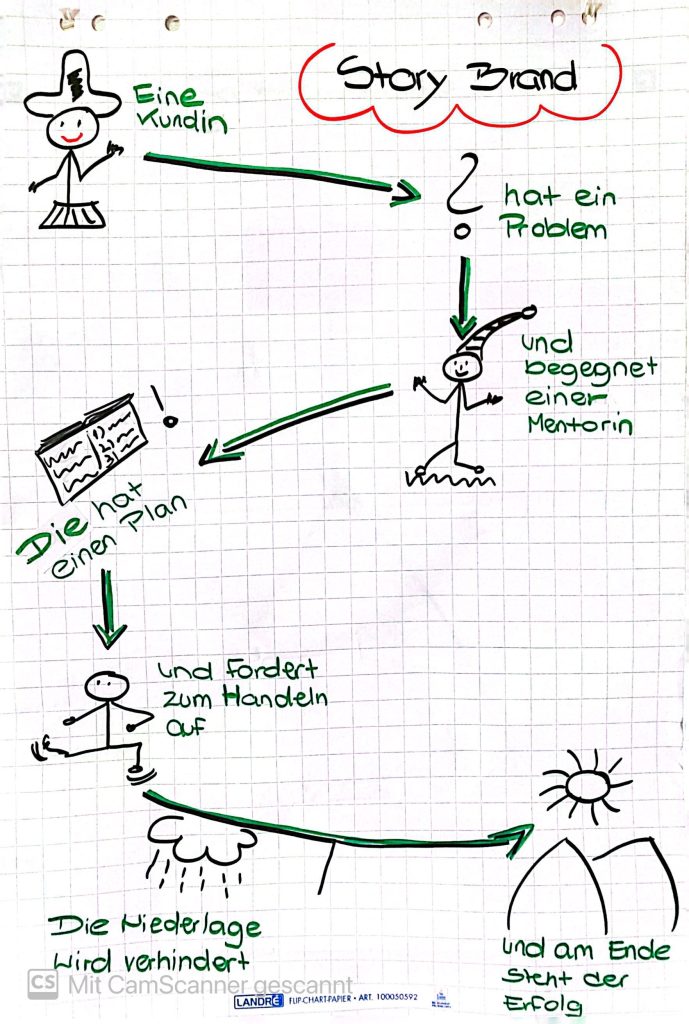 Story Brand
Eine
Kundin
hat ein
Problem
und
begegnet
einer
Mentorin
1)
2)
3)
Die hat
einen Plan
und fordert
zum Handeln
auf
Die Niederlage
wird verhindert
und am Ende
steht der
Erfolg
CS Mit CamScanner gescannt
LANDRÉ FLIP-CHART-PAPIER • ART. 100050592